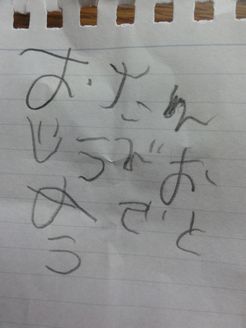 おたん
じうびお
めでと
う